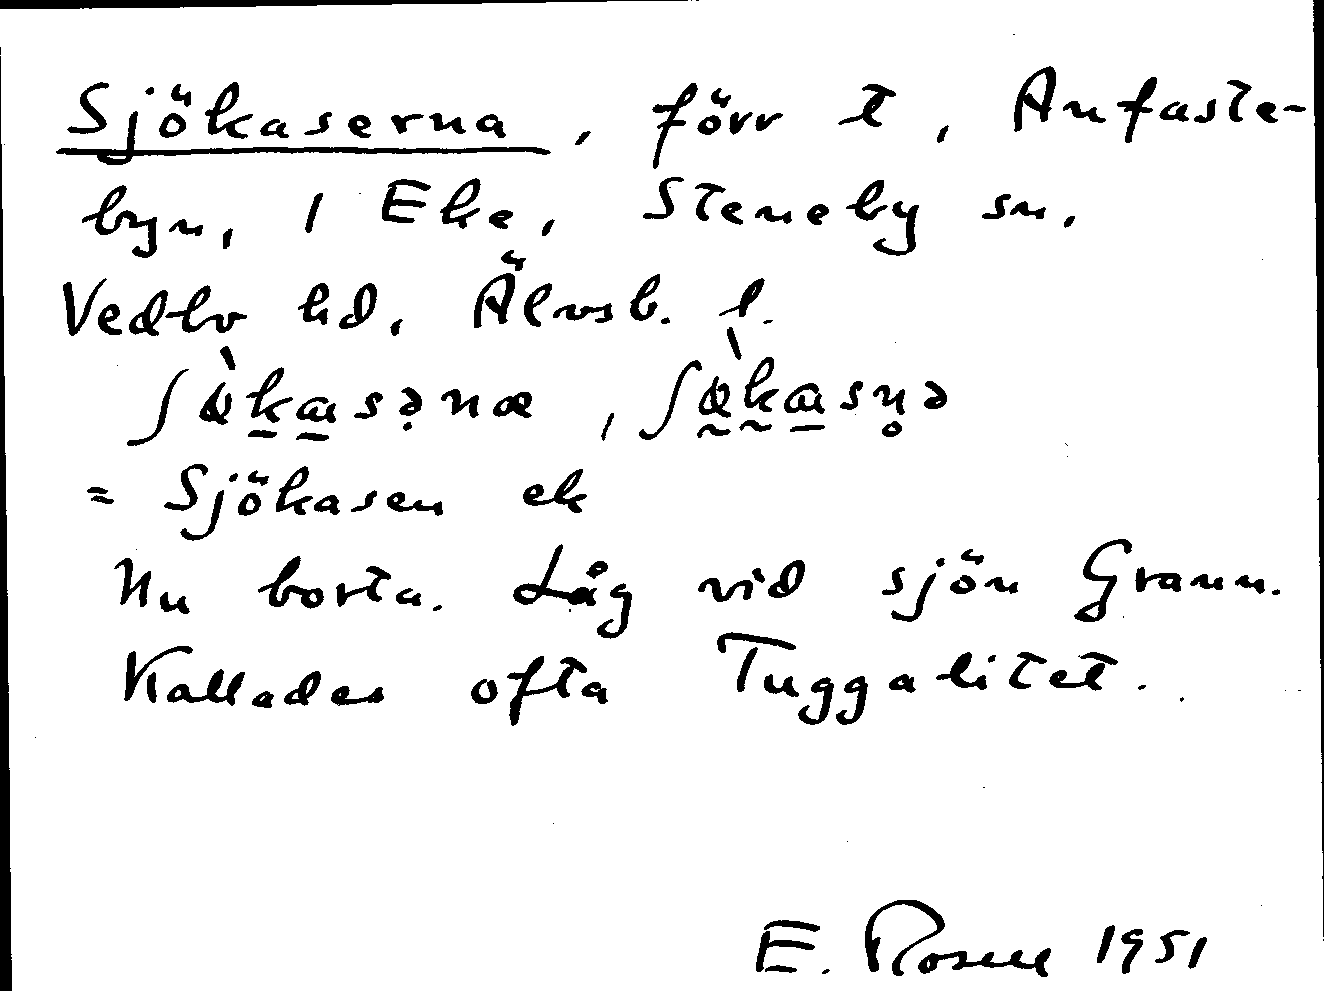 Sjökaserna, förr t, Anfaste-
byn, 1 Eke, Steneby sn,
Vedbo hd, Älvsb. l.
= Sjökasen ek
Nu borta. Låg vid sjön Grann.
Kallades ofta Tuggalitet.
E. Rosell 1951